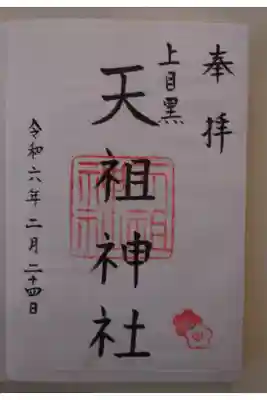 奉拝
上目黒
天祖神社
令和六年二月二十四日